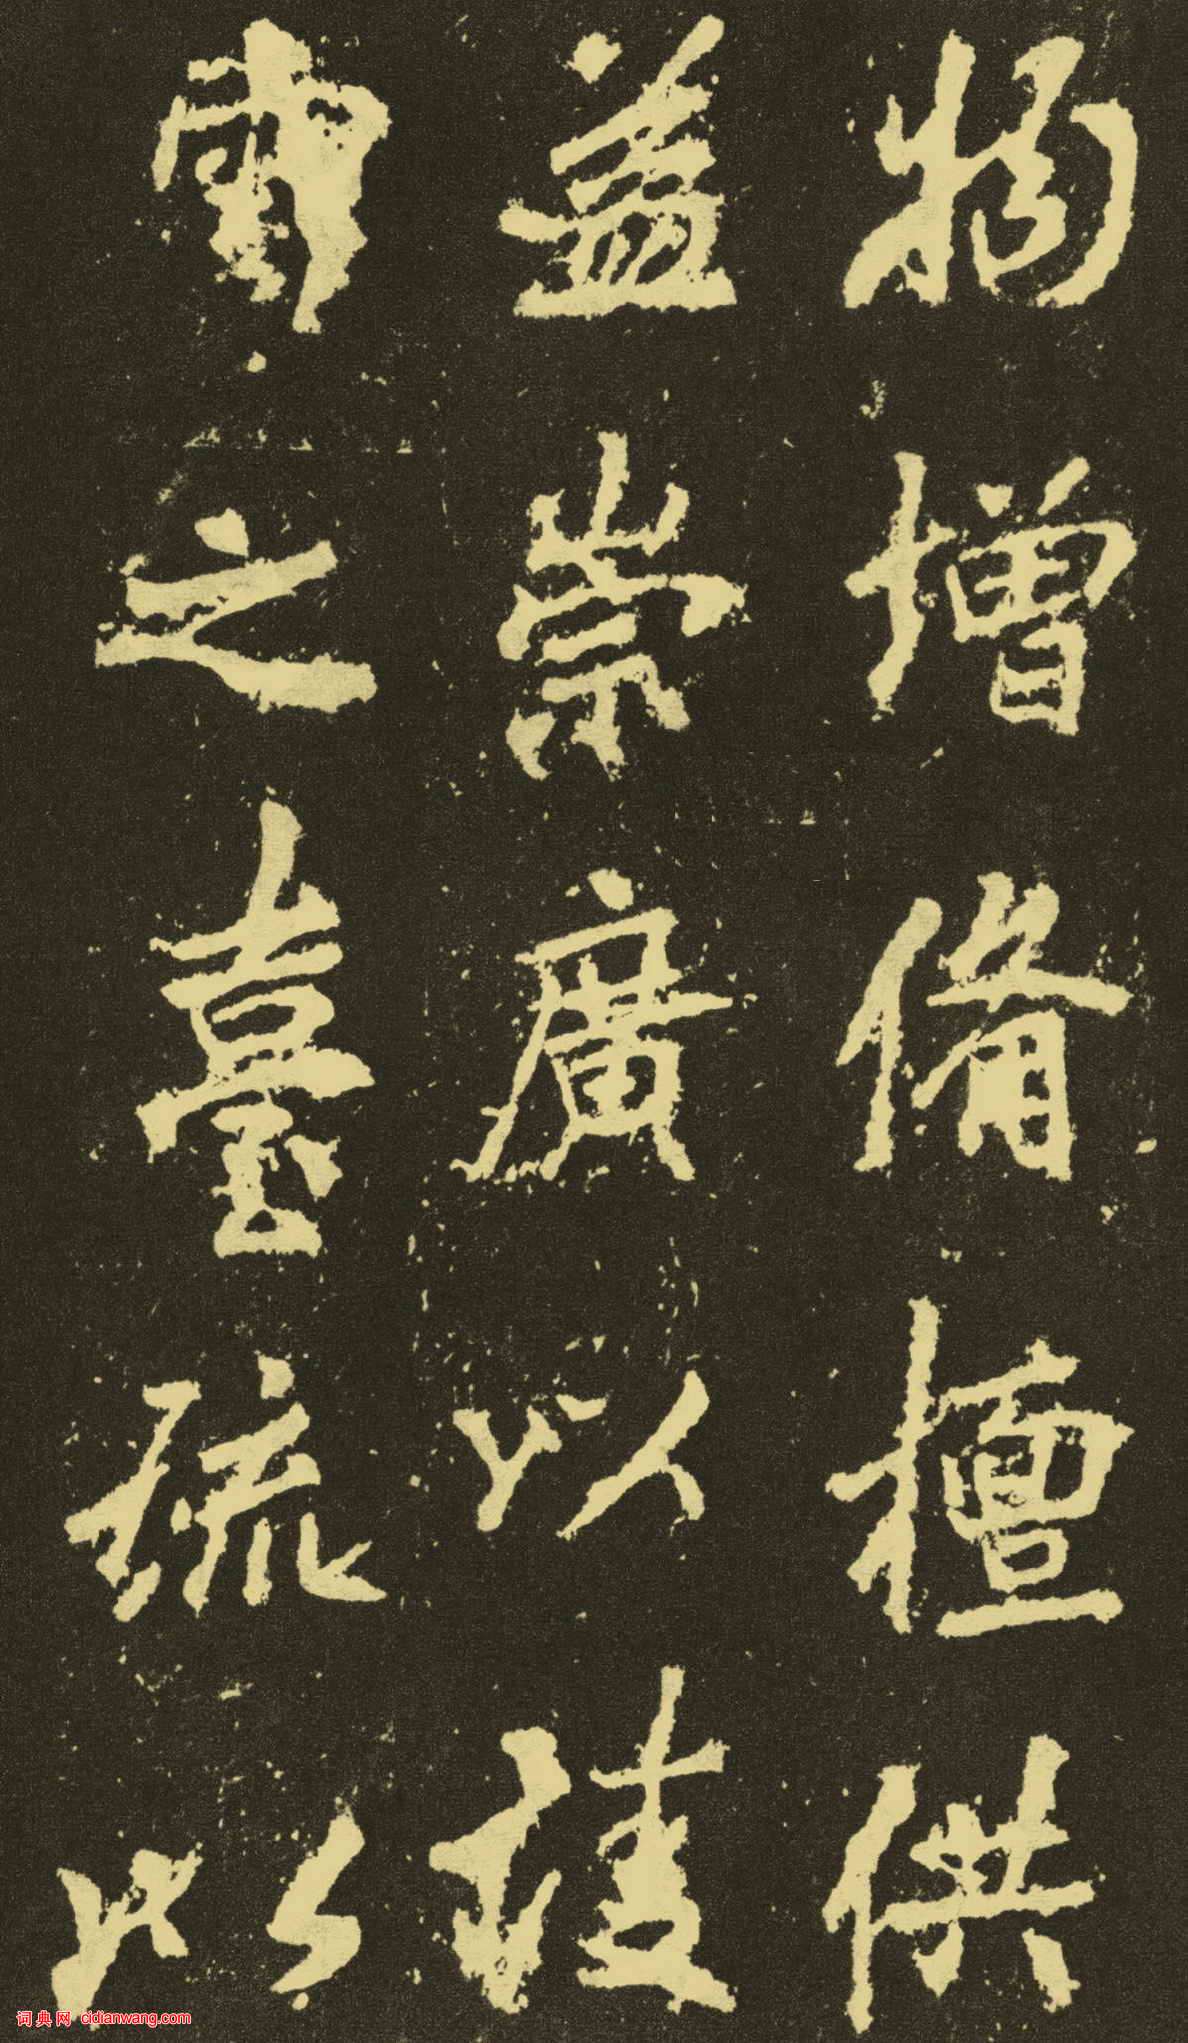 物增備檀供
益崇廣以
雲之臺疏以
词典网 cidianwang.com